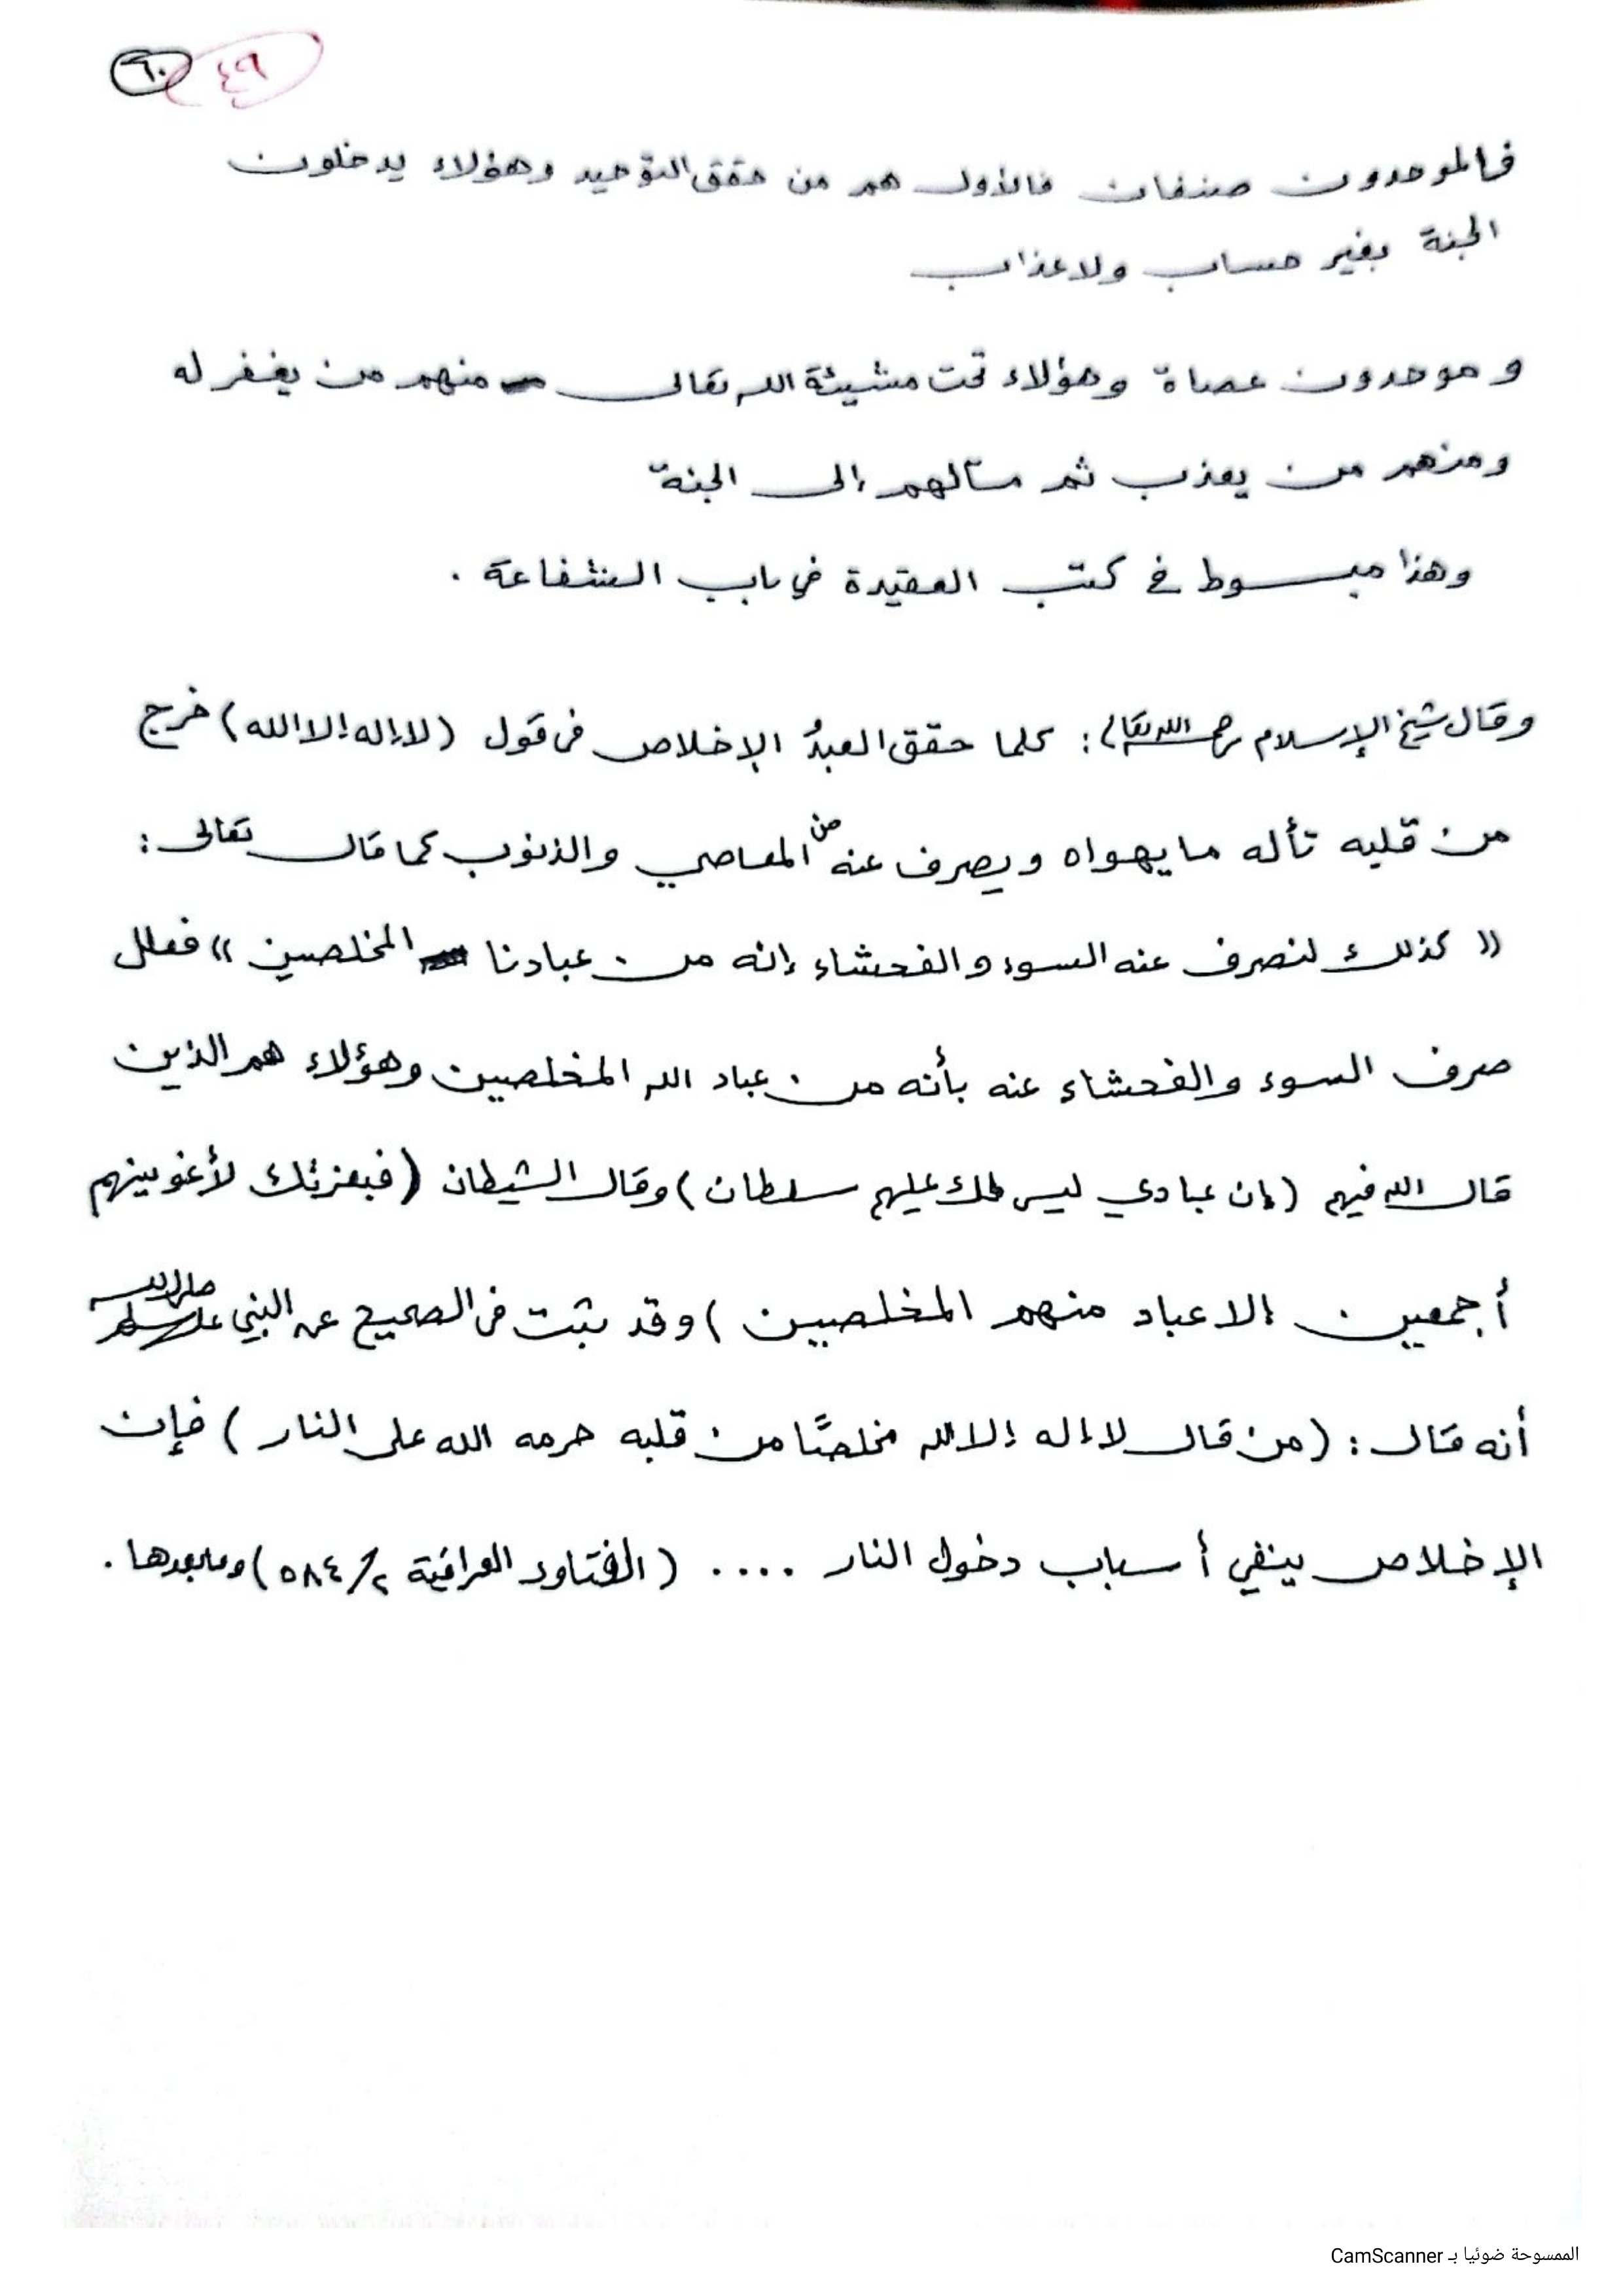 ٤٩ ٦٠
فالموحدون صنفان فالأول هم من حقق التوحيد وهؤلاء يدخلون
الجنة بغير حساب ولا عذاب
وموحدون عصاة وهؤلاء تحت مشيئة الله تعالى منهم من يغفر له
ومنهم من يعذب ثم مآلهم إلى الجنة
وهذا مبسوط في كتب العقيدة في باب الشفاعة .
وقال شيخ الإسلام رحمه الله تعالى : كلما حقق العبدُ الإخلاص في قول (لا إله إلا الله) خرج
من قلبه تأله ما يهواه ويصرف عنه من المعاصي والذنوب كما قال تعالى :
« كذلك لنصرف عنه السوء والفحشاء إنه من عبادنا المخلصين » فعلل
صرف السوء والفحشاء عنه بأنه من عباد الله المخلصين وهؤلاء هم الذين
قال الله فيهم (إن عبادي ليس لك عليهم سلطان) وقال الشيطان (فبعزتك لأغوينهم
أجمعين إلا عباد منهم المخلصين) وقد ثبت في الصحيح عن النبي صلى الله عليه وسلم
أنه قال : (من قال لا إله إلا الله مخلصًا من قلبه حرمه الله على النار) فإن
الإخلاص ينفي أسباب دخول النار .... (الفتاوى العراقية ٢/ ٥٨٤) وما بعدها .
الممسوحة ضوئيا بـ CamScanner